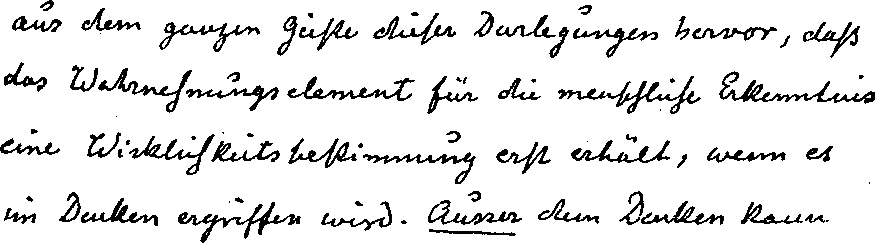 aus dem ganzen Geiste dieser Darlegungen hervor, daß
das Wahrnehmungselement für die menschliche Erkenntnis
eine Wirklichkeitsbestimmung erst erhält, wenn es
im Denken ergriffen wird. Ausser dem Denken kann